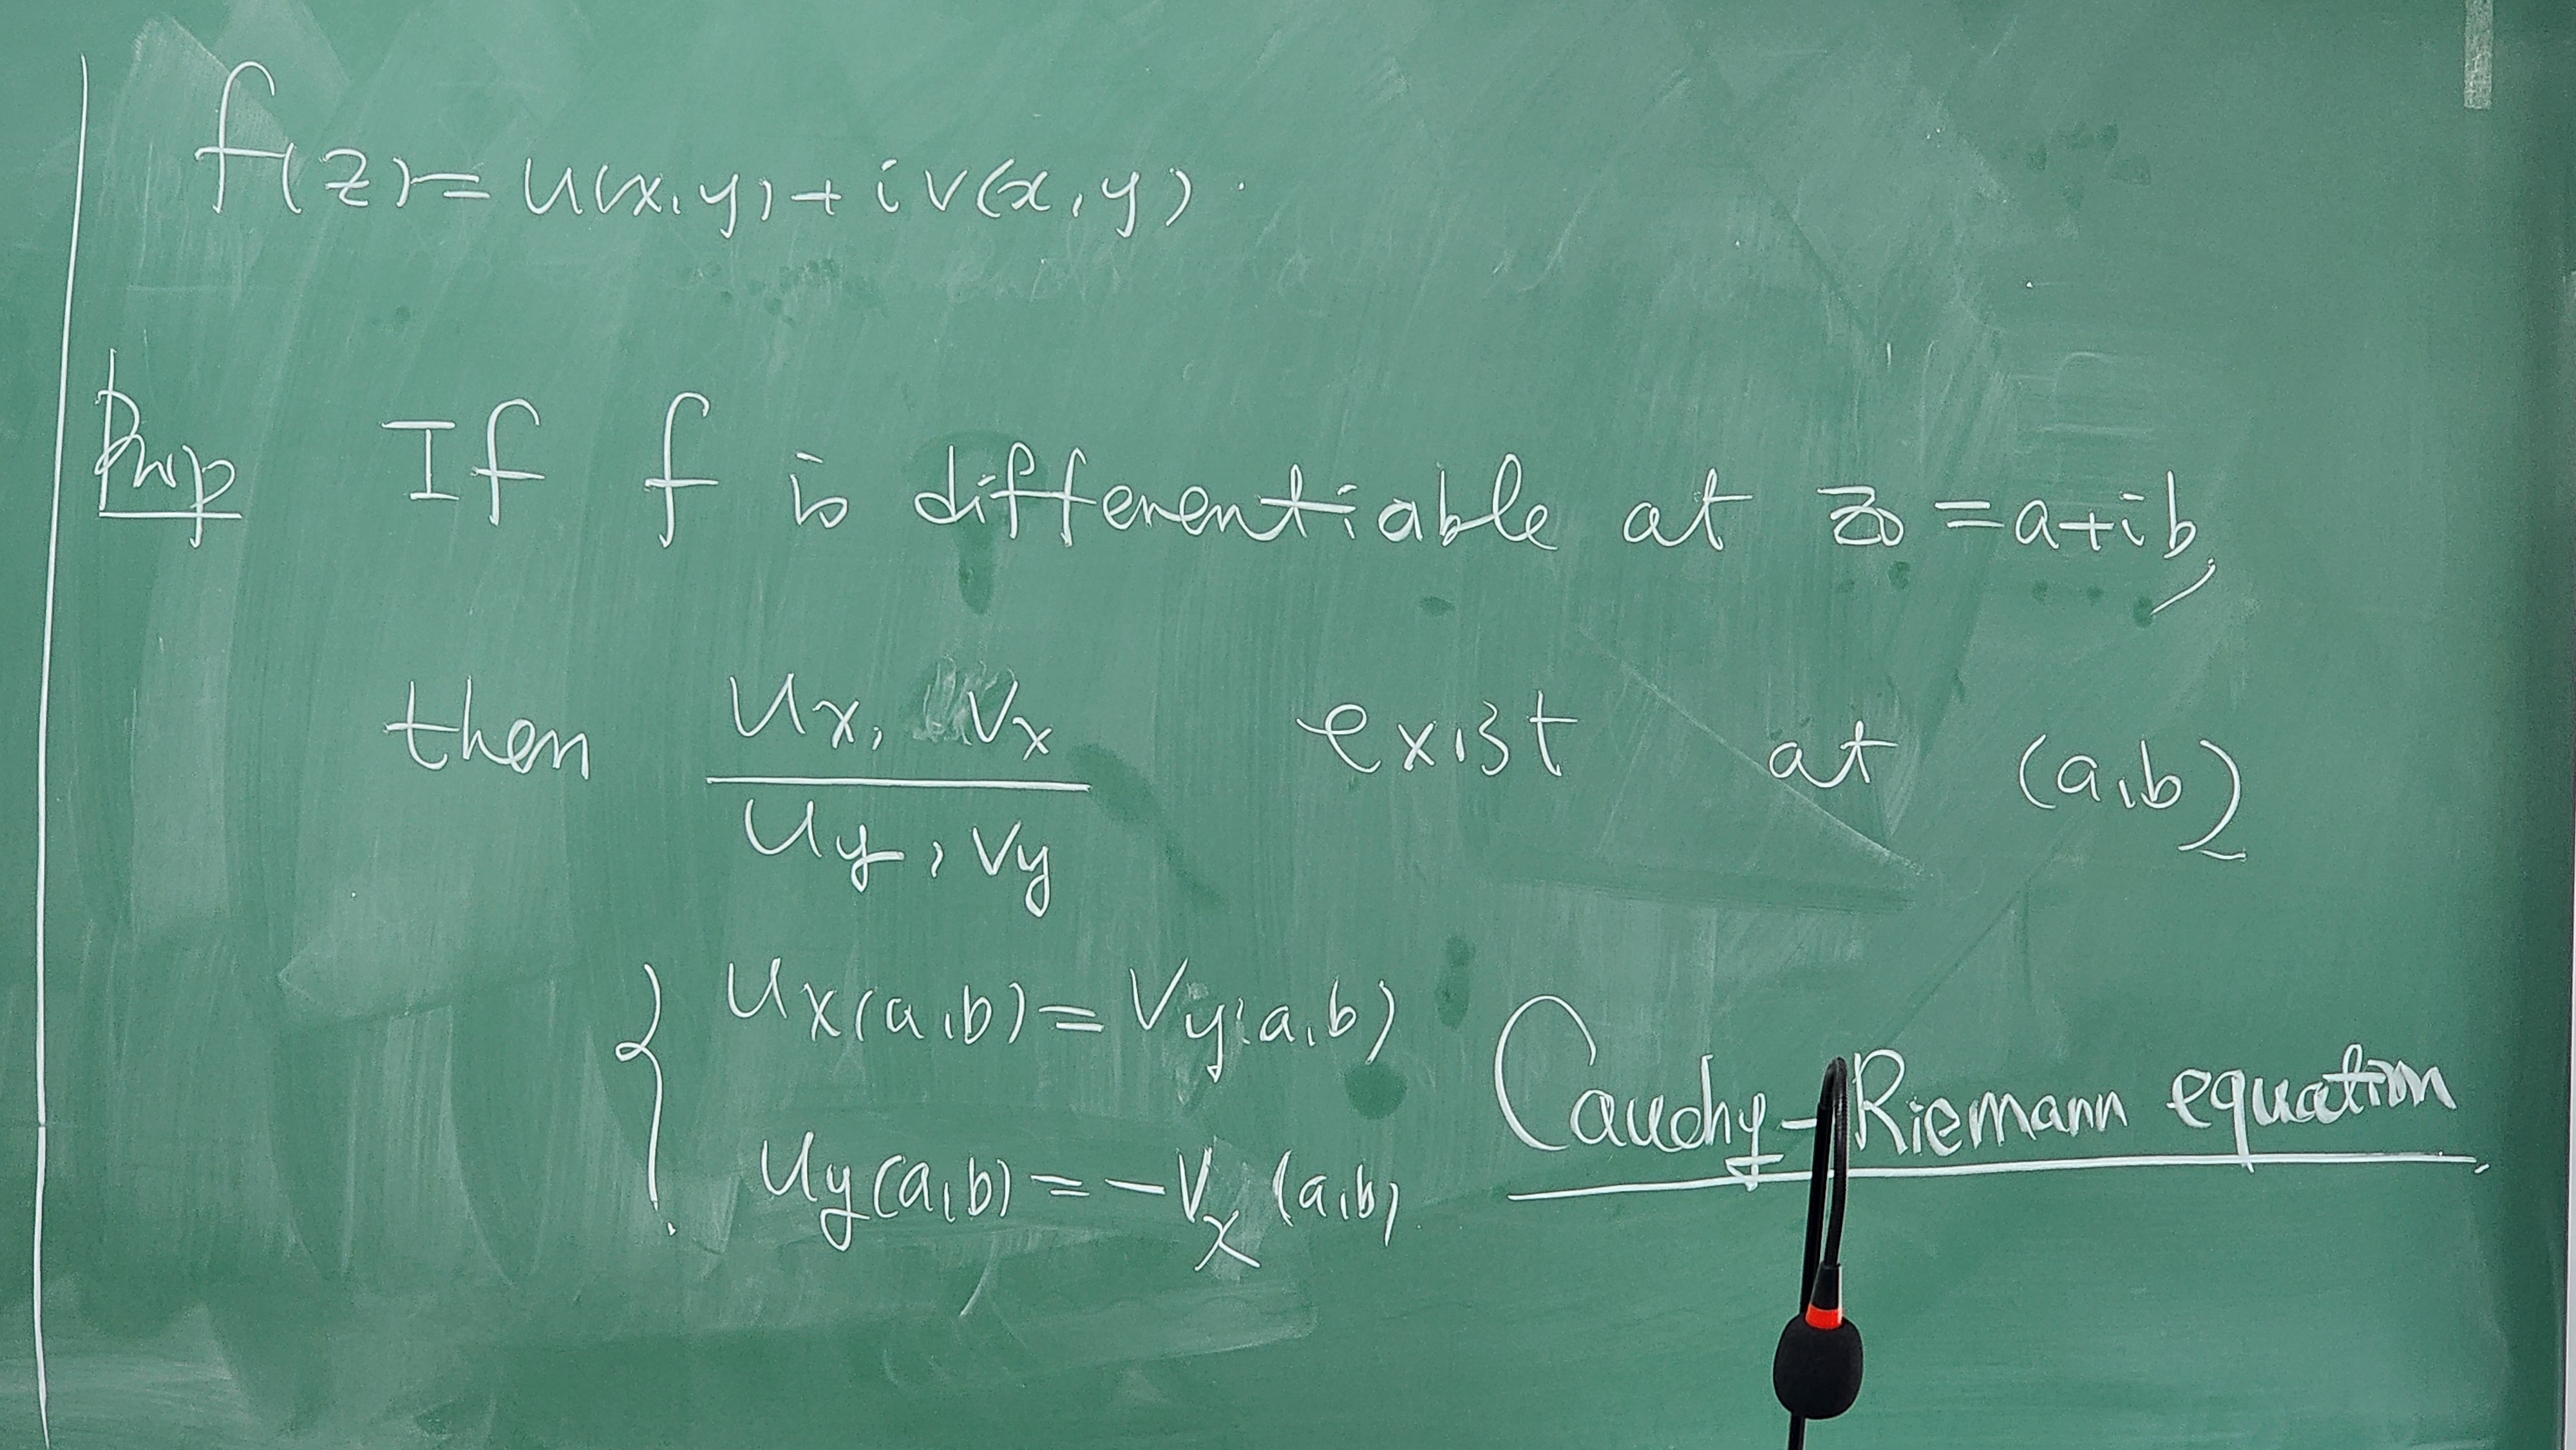 f(z) = u(x,y) + i v(x,y).
Prop If f is differentiable at z₀ = a+ib,
then uₓ, vₓ exist at (a,b)
u_y, v_y
{ uₓ(a,b) = v_y(a,b)
u_y(a,b) = -vₓ(a,b)
Cauchy-Riemann equation